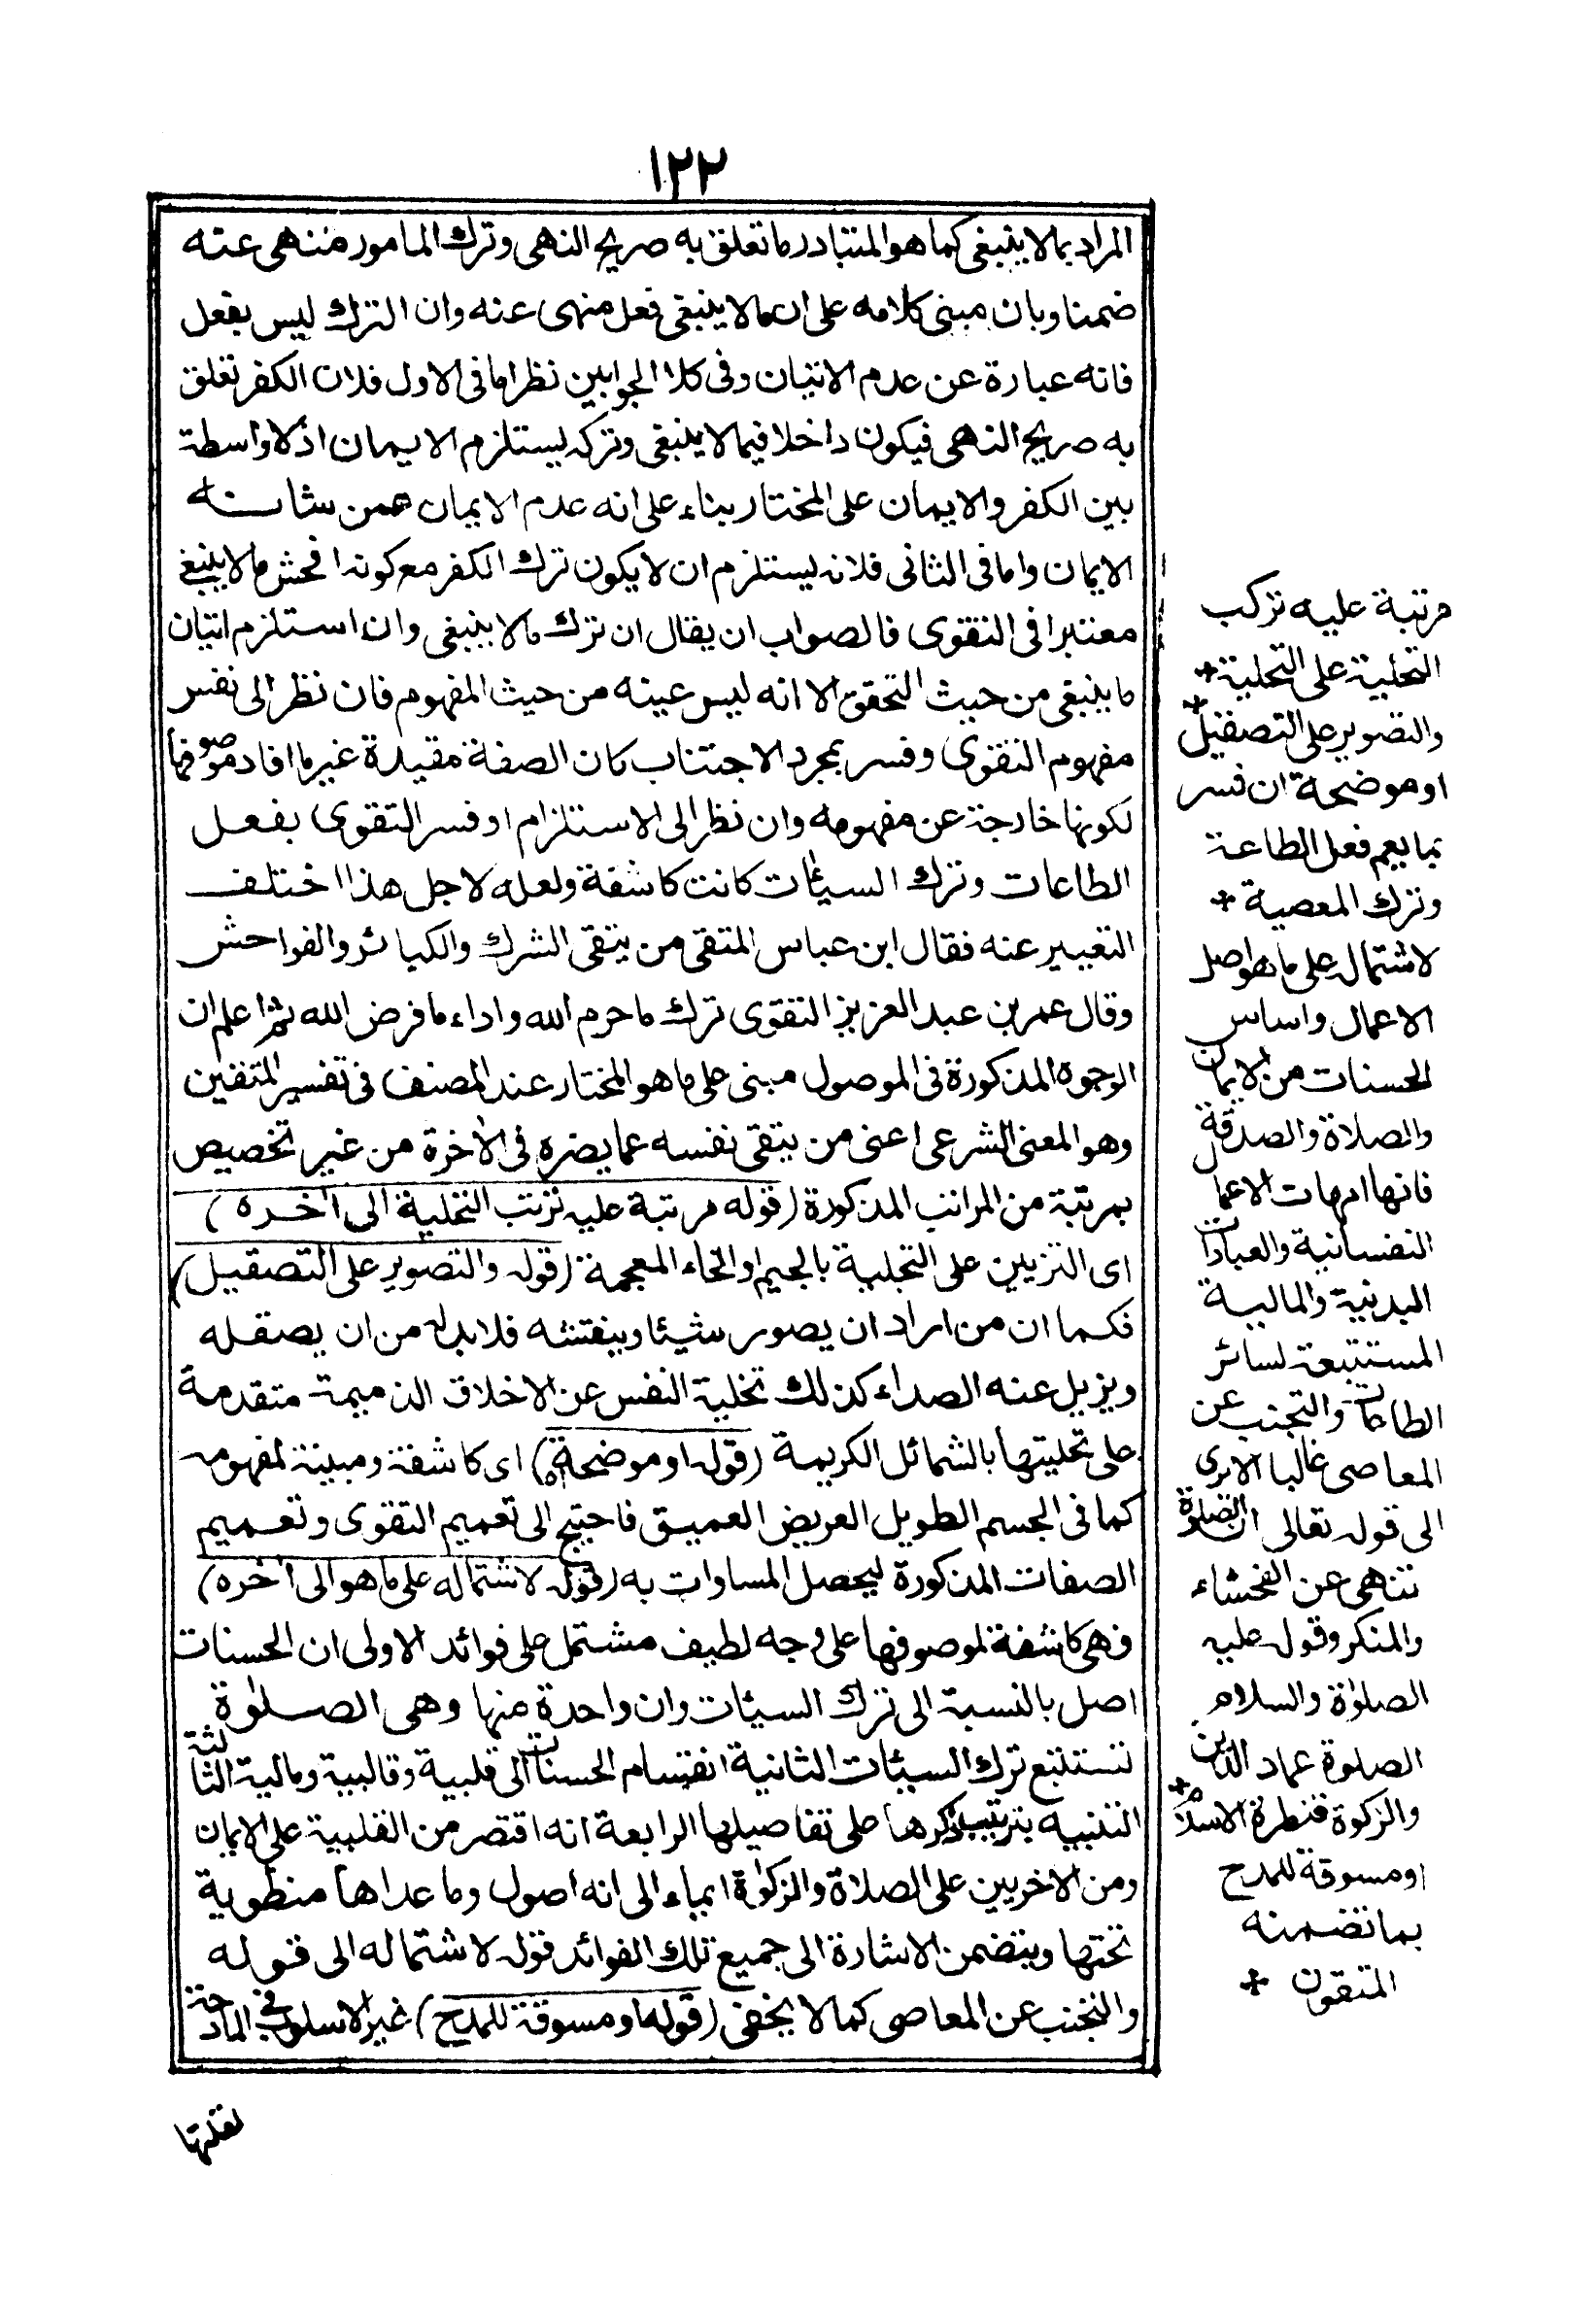 ١٢٢
المراد بما لا ينبغى كما هو المتبادر ما تعلق به صريح النهى وترك المامور منهى عنه
ضمنا وبان مبنى كلامه على ان ما لا ينبغى فعل منهى عنه وان الترك ليس بفعل
فانه عبارة عن عدم الاتيان وفى كلا الجوابين نظر اما فى الاول فلان الكفر تعلق
به صريح النهى فيكون داخلا فيما لا ينبغى وتركه يستلزم الايمان اذ لا واسطة
بين الكفر والايمان على المختار بناء على انه عدم الايمان عمن شانه
الايمان واما فى الثانى فلانه يستلزم ان لا يكون ترك الكفر مع كونه افحش ما لا ينبغى
معتبرا فى التقوى فالصواب ان يقال ان ترك ما لا ينبغى وان استلزم اتيان
ما ينبغى من حيث التحقق الا انه ليس عينه من حيث المفهوم فان نظر الى نفس
مفهوم التقوى وفسر بمجرد الاجتناب كان الصفة مقيدة غير ما افاد موصوفها
لكونها خارجة عن مفهومه وان نظر الى الاستلزام او فسر التقوى بفعل
الطاعات وترك السيئات كانت كاشفة ولعله لاجل هذا اختلف
التعبير عنه فقال ابن عباس المتقى من يتقى الشرك والكبائر والفواحش
وقال عمر بن عبد العزيز التقوى ترك ما حرم الله واداء ما فرض الله ثم اعلم ان
الوجوه المذكورة فى الموصول مبنى على ما هو المختار عند المصنف فى تفسير المتقين
وهو المعنى الشرعى اعنى من يتقى نفسه عما يضره فى الأخرة من غير تخصيص
بمرتبة من المراتب المذكورة (قوله مرتبة عليه ترتب التحلية الى أخره)
اى التزيين على التجلية بالجيم او الخاء المعجمة (قوله والتصوير على التصقيل)
فكما ان من اراد ان يصور شيئا وينقشه فلا بد له من ان يصقله
ويزيل عنه الصداء كذلك تخلية النفس عن الاخلاق الذميمة متقدمة
على تحليتها بالشمائل الكريمة (قوله او موضحة) اى كاشفة ومبينة لمفهومه
كما فى الجسم الطويل العريض العميق فاحتيج الى تعميم التقوى وتعميم
الصفات المذكورة ليحصل المساوات به (قوله لاشتماله على ما هو الى أخره)
فهى كاشفة لموصوفها على وجه لطيف مشتمل على فوائد الاولى ان الحسنات
اصل بالنسبة الى ترك السيئات وان واحدة منها وهى الصلوة
تستتبع ترك السيئات الثانية انقسام الحسنات الى قلبية وقالبية ومالية الثالثة
التنبيه بترتيب ذكرها على تفاصيلها الرابعة انه اقتصر من القلبية على الايمان
ومن الاخريين على الصلاة والزكوة ايماء الى انه اصول وما عداها منطوية
تحتها ويتضمن الاشارة الى جميع تلك الفوائد قوله لاشتماله الى قوله
والتجنب عن المعاصى كما لا يخفى (قوله او مسوقة للمدح) غير الاسلوب فى المادحة
نقلتها
مرتبة عليه ترکب
التحلية على التخلية *
والتصوير على التصقيل *
او موضحة ان فسر
بما يعم فعل الطاعة
وترك المعصية *
لاشتماله على ما هو اصل
الاعمال واساس
الحسنات من الايمان
والصلاة والصدقة
فانها امهات الاعمال
النفسانية والعبادات
البدنية والمالية
المستتبعة لسائر
الطاعات والتجنب عن
المعاصى غالبا الا ترى
الى قوله تعالى ان الصلوة
تنهى عن الفحشاء
والمنكر وقوله عليه
الصلوة والسلام
الصلوة عماد الدين
والزكوة قنطرة الاسلام *
او مسوقة للمدح
بما تضمنه
المتقون *